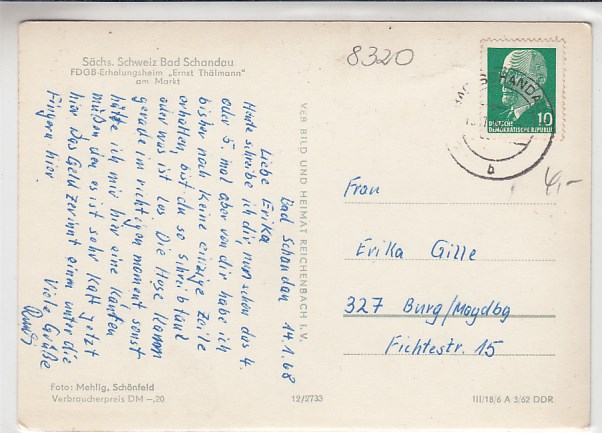 Sächs. Schweiz Bad Schandau
FDGB-Erholungsheim „Ernst Thälmann“
am Markt
8320
10
DEUTSCHE
DEMOKRATISCHE REPUBLIK
b
4,-
Bad Schandau 14.1.68
Liebe Erika
Heute schreibe ich dir nun schon das 4.
oder 5. mal aber von dir habe ich
bisher noch keine einzige Zeile
erhalten, bist du so schreibfaul
oder was ist los. Die Hose kamm
gerade im richtigen moment, sonst
hätte ich mir hier eine kaufen
müßen, den es ist sehr kalt jetzt
hier. Das Geld zerrinnt einm unter die
Fingern hier.
Viele Grüße
VEB BILD UND HEIMAT REICHENBACH I. V.
Frau
Erika Gille
327 Burg/Magdbg
Fichtestr. 15
Foto: Mehlig, Schönfeld
Verbraucherpreis DM –,20
12/2733
III/18/6 A 3/62 DDR